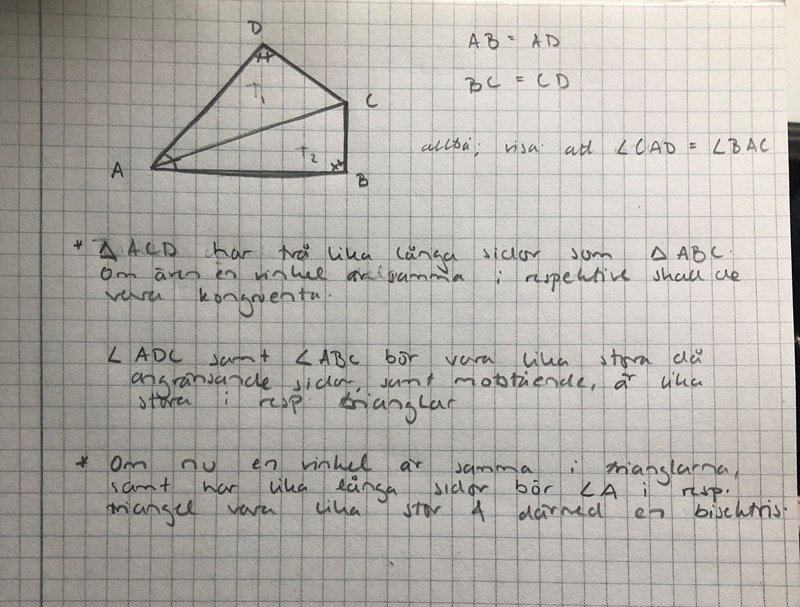 D
AB = AD
BC = CD
T1
C
alltså; visa att ∠CAD = ∠BAC
T2
A
B
* △ ACD har två lika långa sidor som △ ABC.
Om även en vinkel är samma i respektive skall de
vara kongruenta.
∠ ADC samt ∠ ABC bör vara lika stora då
angränsande sidor, samt motstående, är lika
stora i resp. trianglar
* Om nu en vinkel är samma i trianglarna,
samt har lika långa sidor bör ∠A i resp.
triangel vara lika stor & därmed en bisektris.